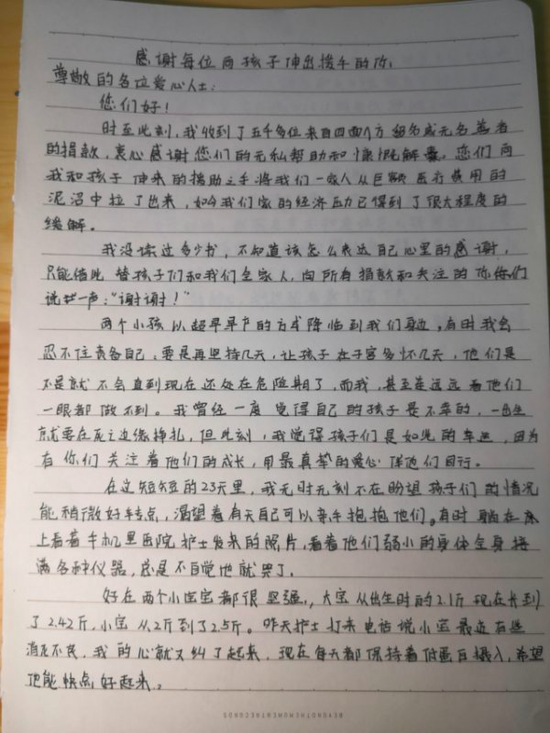 感谢每位向孩子伸出援手的你:
尊敬的各位爱心人士:
您们好!
时至此刻,我收到了五千多位来自四面八方 组名或无名 善者
的捐款,衷心感谢您们的无私帮助和慷慨解囊。您们向
我和孩子 伸来的援助之手将我们一家人从巨额 医疗费用的
泥沼中拉了出来,如今我们家的经济压力已得到了很大程度的
缓解。
我没读过多少书,不知道该怎么表达自己心里的感谢,
只能借此 替孩子们和我们全家人,向所有捐款和关注的你们
说一声:“谢谢!”
两个小孩 以超早早产的方式降临到我们身边,有时我会
忍不住责备自己,要是再坚持几天,让孩子在子宫多怀几天,他们是
不是就不会直到现在还处在危险期了,而我,甚至连远远看他们
一眼都做不到。我曾经一度觉得自己的孩子是不幸的,一出生
就要在死亡边缘挣扎,但此刻,我觉得孩子们是如此的幸运,因为
有你们关注着他们的成长,用最真挚的爱心伴他们同行。
在这短短的23天里,我无时无刻不在盼望孩子们的情况
能稍微好转点,渴望着有天自己可以亲手抱抱他们。有时躺在床
上看着手机里医院护士发来的照片,看着他们弱小的身体全身接
满各种仪器,总是不自觉地就哭了。
好在两个小宝宝都很坚强,大宝从出生时的2.1斤现在长到
了2.42斤,小宝从2斤到了2.5斤。昨天护士打来电话说小宝最近有些
消化不良,我的心就又纠了起来,现在每天都保持着低蛋白摄入,希望
他能快点好起来。